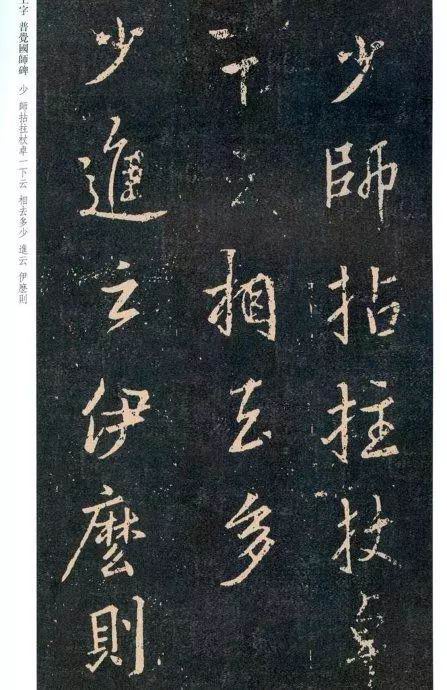 少師拈拄杖卓一
下云相去多
少進云伊麽則
王字 普覺國師碑 少 師拈拄杖卓一下云 相去多少 進云 伊麽則